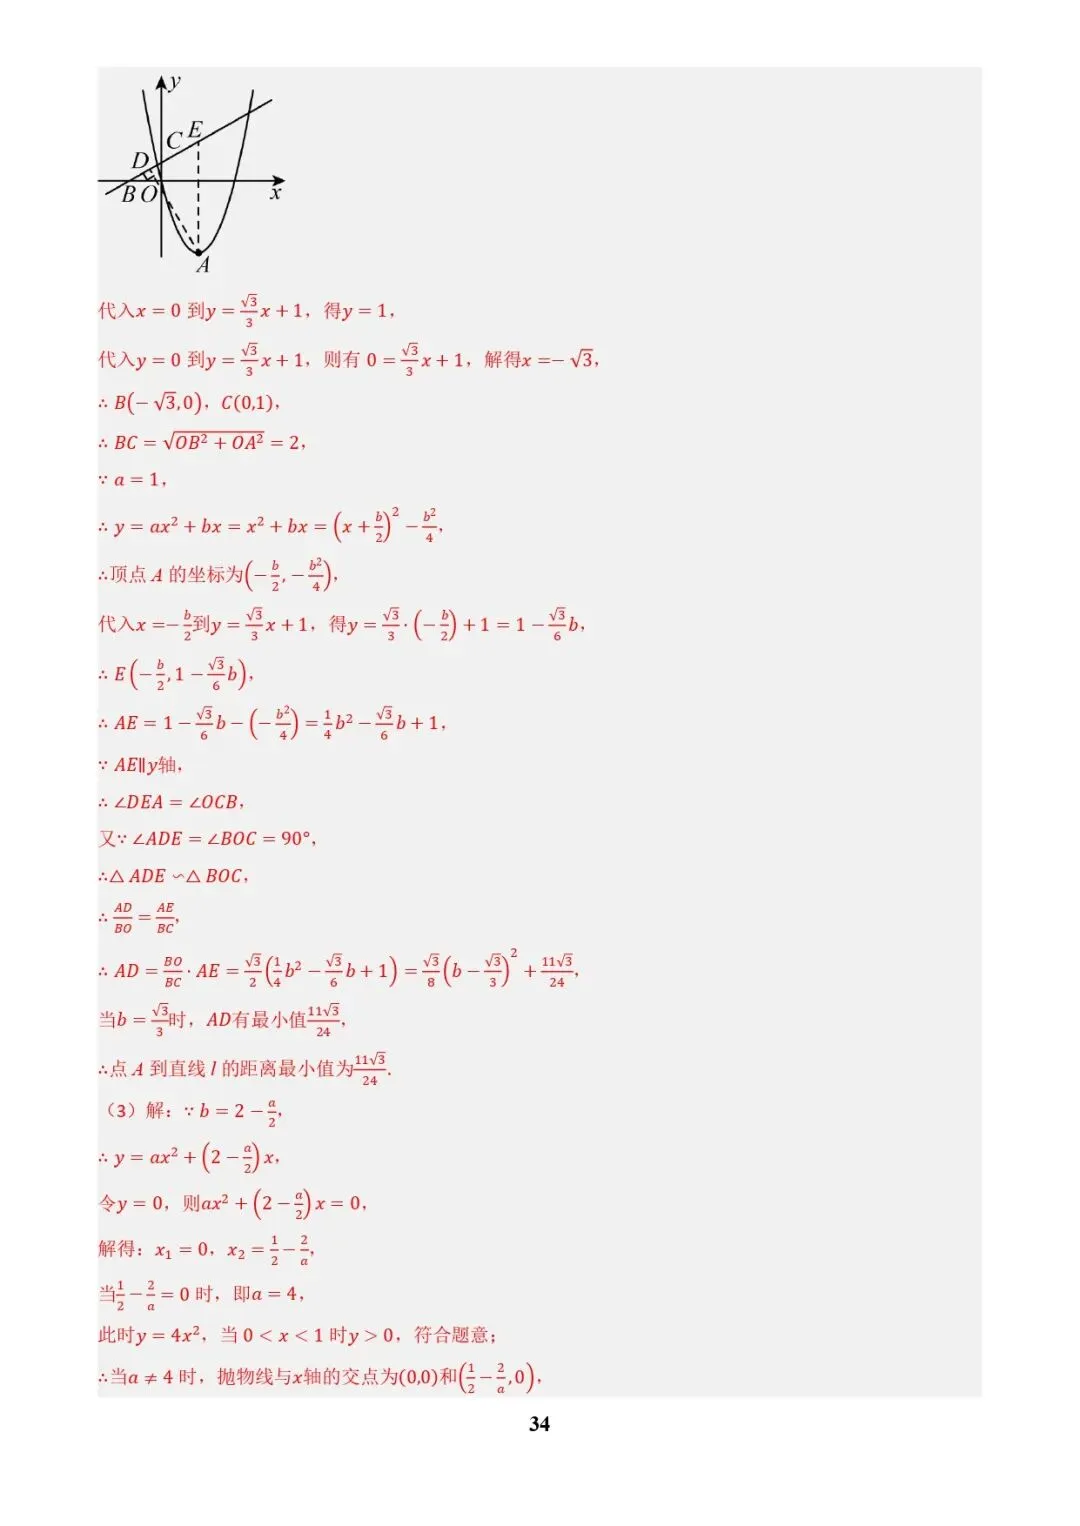 y
C E
D
B O x
A
代入x = 0 到y = \frac{\sqrt{3}}{3}x + 1，得y = 1，
代入y = 0 到y = \frac{\sqrt{3}}{3}x + 1，则有 0 = \frac{\sqrt{3}}{3}x + 1，解得x =− \sqrt{3}，
∴ B(− \sqrt{3},0)，C(0,1)，
∴ BC = \sqrt{OB² + OA²} = 2，
∵ a = 1，
∴ y = ax² + bx = x² + bx = (x + \frac{b}{2})² − \frac{b²}{4}，
∴顶点 A 的坐标为(− \frac{b}{2}, − \frac{b²}{4})，
代入x =− \frac{b}{2}到y = \frac{\sqrt{3}}{3}x + 1，得y = \frac{\sqrt{3}}{3}·(− \frac{b}{2}) + 1 = 1 − \frac{\sqrt{3}}{6}b，
∴ E(− \frac{b}{2},1 − \frac{\sqrt{3}}{6}b)，
∴ AE = 1 − \frac{\sqrt{3}}{6}b − (− \frac{b²}{4}) = \frac{1}{4}b² − \frac{\sqrt{3}}{6}b + 1，
∵ AE∥y轴，
∴ ∠DEA = ∠OCB，
又∵ ∠ADE = ∠BOC = 90°，
∴△ ADE ∽△ BOC，
∴ \frac{AD}{BO} = \frac{AE}{BC}，
∴ AD = \frac{BO}{BC}· AE = \frac{\sqrt{3}}{2}(\frac{1}{4}b² − \frac{\sqrt{3}}{6}b + 1) = \frac{\sqrt{3}}{8}(b − \frac{\sqrt{3}}{3})² + \frac{11\sqrt{3}}{24}，
当b = \frac{\sqrt{3}}{3}时，AD有最小值\frac{11\sqrt{3}}{24}，
∴点 A 到直线 l 的距离最小值为\frac{11\sqrt{3}}{24}.
（3）解：∵ b = 2 − \frac{a}{2}，
∴ y = ax² + (2 − \frac{a}{2})x，
令y = 0，则ax² + (2 − \frac{a}{2})x = 0，
解得：x₁ = 0，x₂ = \frac{1}{2} − \frac{2}{a}，
当\frac{1}{2} − \frac{2}{a} = 0 时，即a = 4，
此时y = 4x²，当 0 < x < 1 时y > 0，符合题意；
∴当a ≠ 4 时，抛物线与x轴的交点为(0,0)和(\frac{1}{2} − \frac{2}{a},0)，
34